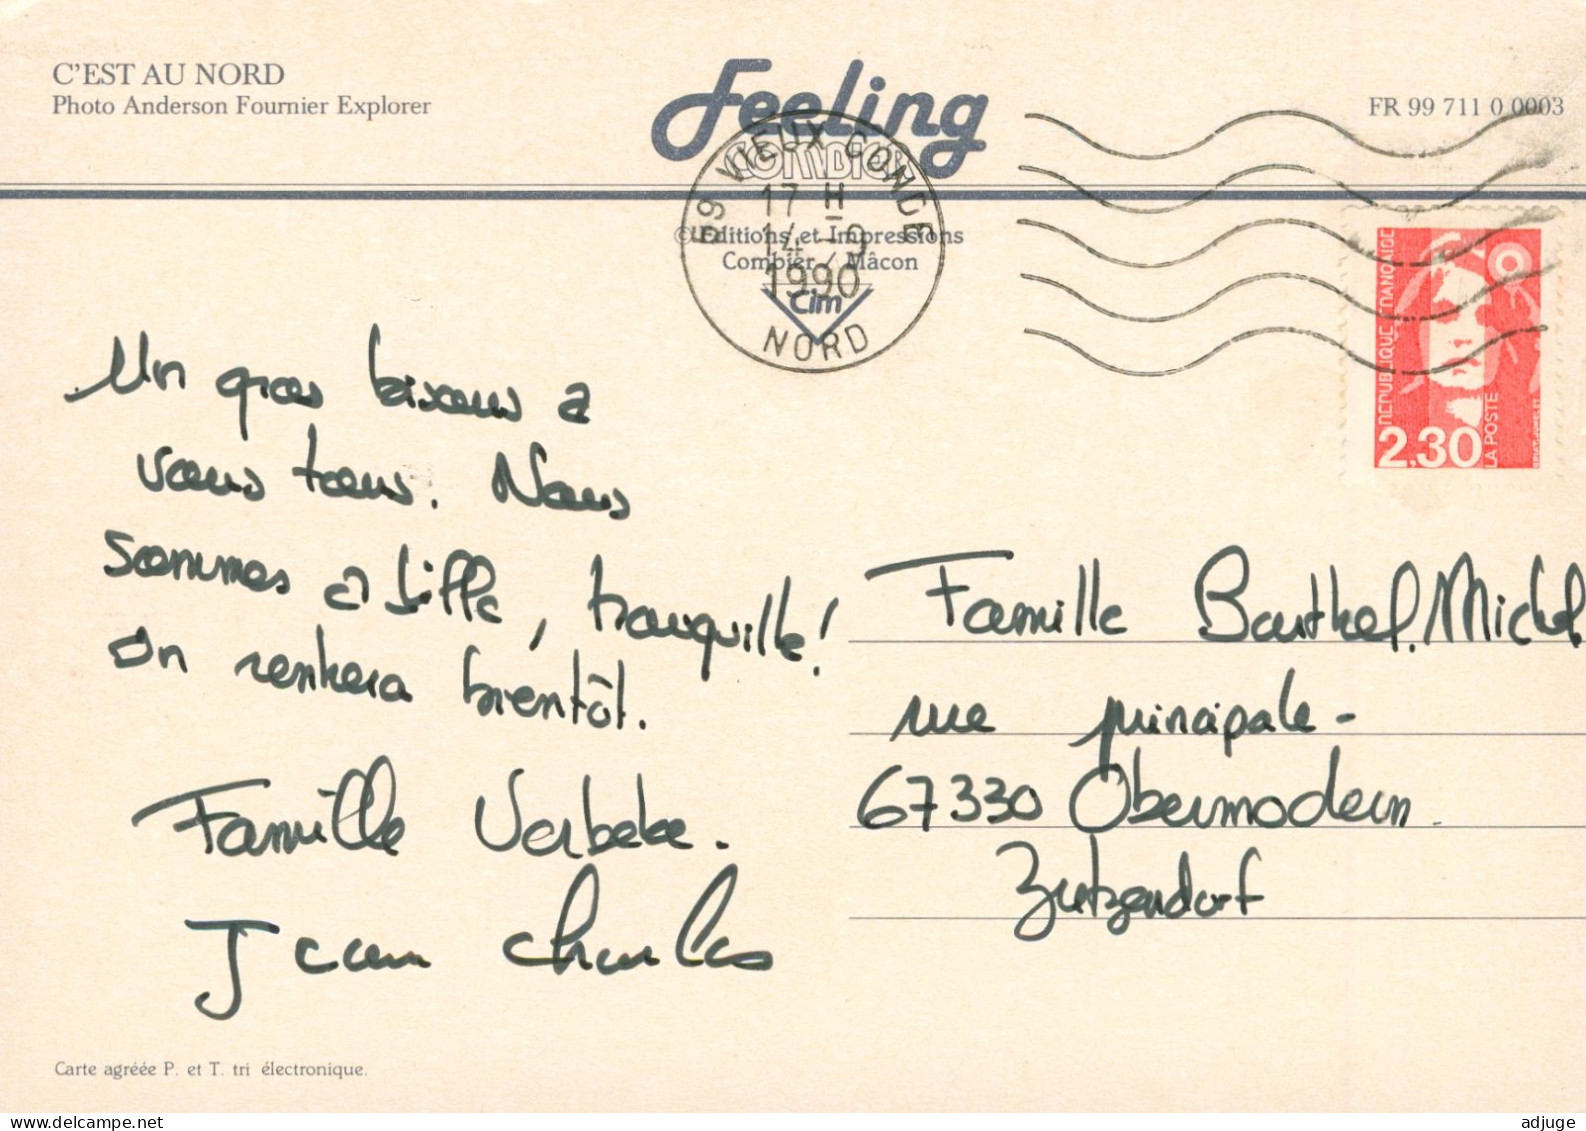 C'EST AU NORD
Photo Anderson Fournier Explorer
Feeling
COMBIER
FR 99 711 0 0003
59 VIEUX CONDE
17 H
14 -9
1990
NORD
© Editions et Impressions
Combier / Mâcon
Cim
REPUBLIQUE FRANÇAISE
2,30
LA POSTE
Un gros bisous a
vous tous. Nous
sommes a Lille, tranquille!
On rentrera bientôt.
Famille Verbeke.
Jean Charles
Famille Barthel. Michel
rue principale -
67330 Obermodern
Zutzendorf
Carte agréée P. et T. tri électronique.
© delcampe.net
adjuge